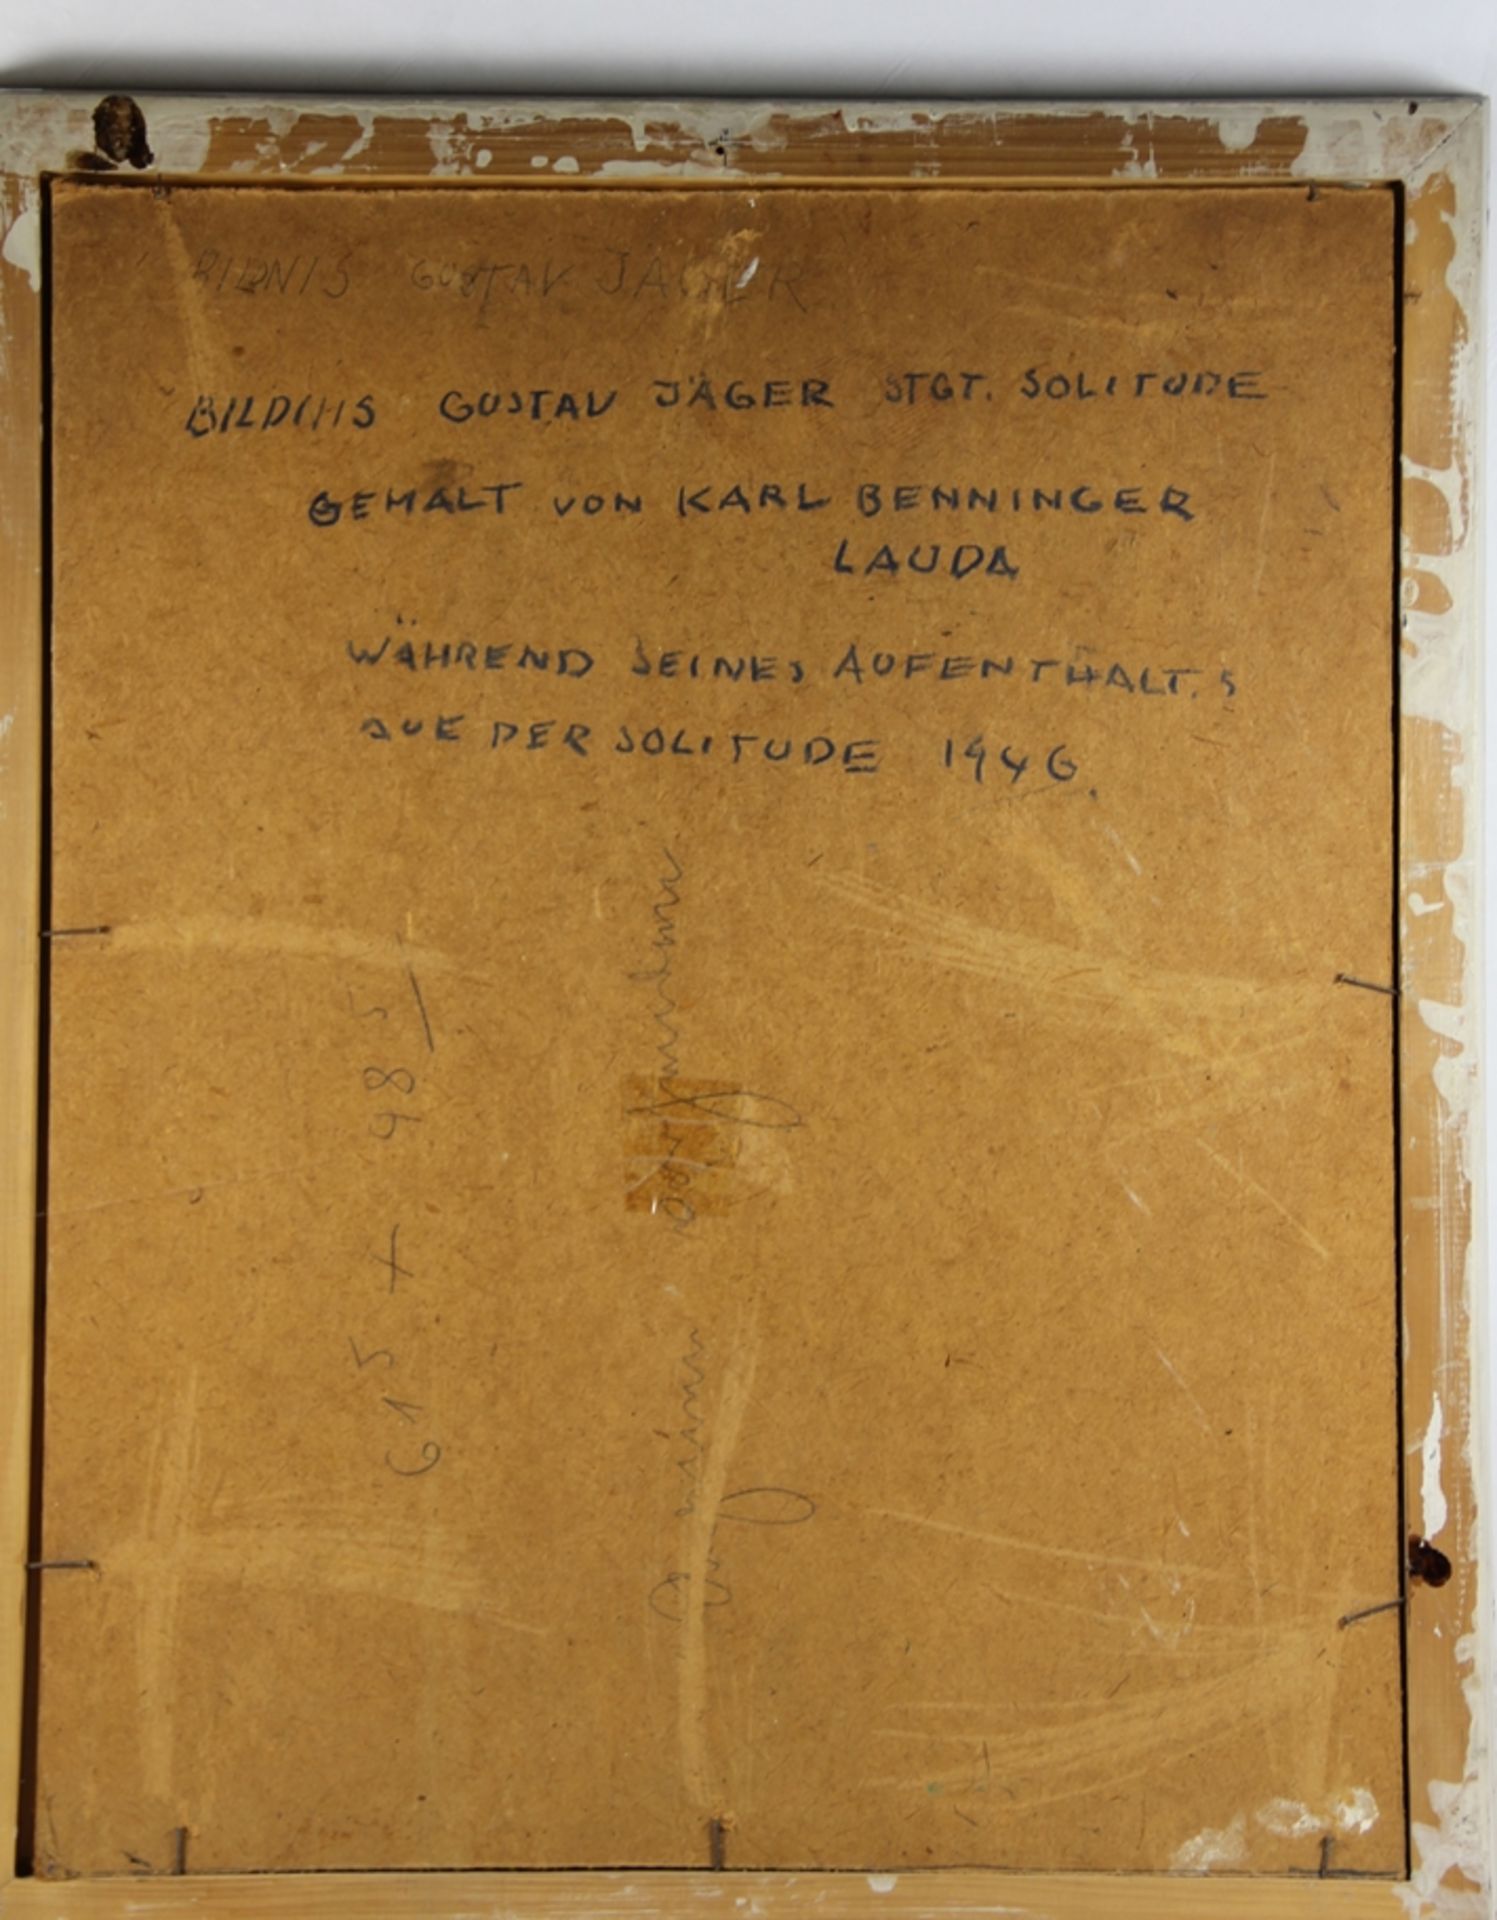 BILDNIS GUSTAV JÄGER
BILDNIS GUSTAV JÄGER STGT. SOLITUDE
GEMALT VON KARL BENNINGER
LAUDA
WÄHREND SEINES AUFENTHALT.S
AUF DER SOLITUDE 1946.
61⁵ x 48⁵